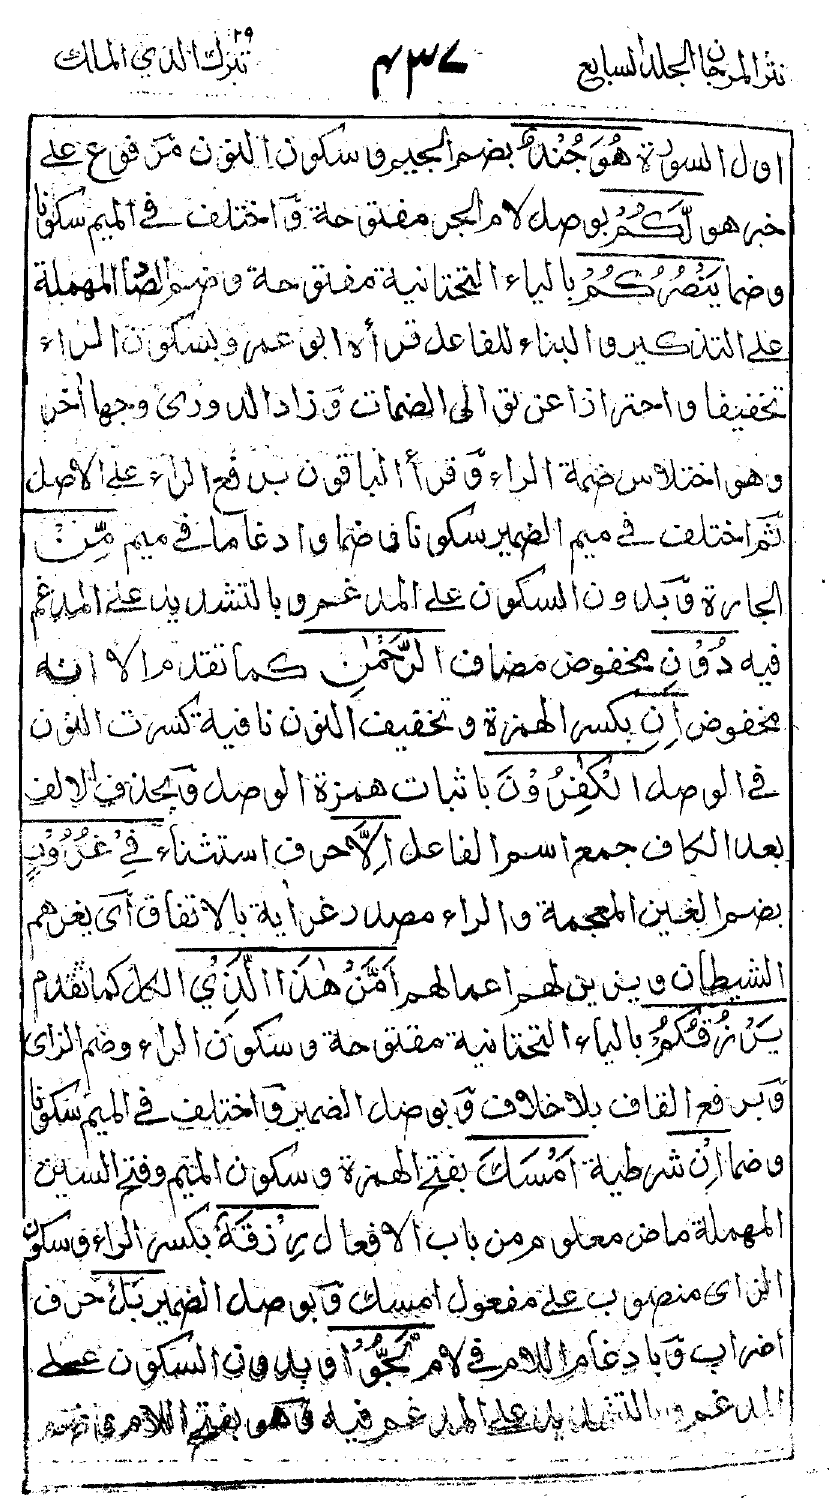 نثر المرجان الجلد السابع ۴۳۷ تبرك الذي الملك ۲۹
اول السورة هُوَ جُنْدٌ بضم الجيم وسكون النون مرفوع على
خبر هو لَّكُمْ بوصل لام الجر مفتوحة وَاختلف في الميم سكونا
وضما يَنْصُرُكُمْ بالياء التحتانية مفتوحة وضم الصاد المهملة
على التذكير والبناء للفاعل قرأه ابو عمرو بسكون الراء
تخفيفا واحترازا عن توالى الضمات وَزاد الدوري وجها أخر
وهو اختلاس ضمة الراء وَقرأ الباقون برفع الراء على الاصل
ثم اختلف في ميم الضمير سكونا وضما وادغاما في ميم مِّنْ
الجارة وَبدون السكون على المدغم وبالتشديد على المدغم
فيه دُوْنِ مخفوض مضاف الرَّحْمٰنِ كما تقدم الا انه
مخفوض اِنِ بكسر الهمزة وتخفيف النون نافية كسرت النون
في الوصل الْكٰفِرُوْنَ باثبات همزة الوصل وَبحذف الالف
بعد الكاف جمع اسم الفاعل اِلَّا حرف استثناء فِيْ غُرُوْرٍ
بضم الغين المعجمة والراء مصدر غرأية بالاتفاق أى يغرهم
الشيطان ويزين لهم اعمالهم اَمَّنْ هٰذَا الَّذِيْ الكل كما تقدم
يَرْزُقُكُمْ بالياء التحتانية مفتوحة وسكون الراء وضم الزاى
وَبرفع القاف بلا خلاف وَبوصل الضمير وَاختلف في الميم سكونا
وضما اِنْ شرطية اَمْسَكَ بفتح الهمزة وسكون الميم وفتح السين
المهملة ماض معلوم من باب الافعال رِزْقَهٗ بكسر الراء وسكون
الزاى منصوب على مفعول امسك وَبوصل الضمير بَلْ حرف
اضراب وَبادغام اللام في لام لَّجُّوْا وبدون السكون على
المدغم وبالتشديد على المدغم فيه وَهو بفتح اللام